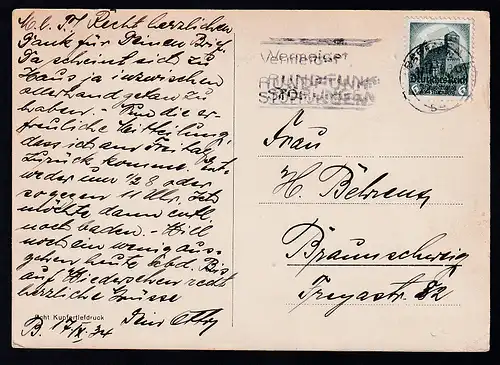 M. l. T! Recht herzlichen
Dank für Deinen Brief.
Da scheint sich zu
Haus ja inzwischen
allerhand getan zu
haben. - Nun die er-
freuliche Mitteilung,
dass ich am Freitag
zurück komme. Ent-
weder um 1/2 8 oder
sogar 11 Uhr. Ich
möchte dann evtl.
noch baden. - Will
noch ein wenig aus-
gehen heute Abd. Bis
auf Wiedersehen recht
herzliche Grüsse
Dein Otto
B. 17/IX. 34
Echt Kupfertiefdruck
Vermeidet
RUNDFUNK
STÖRUNGEN
Frau
H. Behrens
Braunschweig
Freyastr. 82